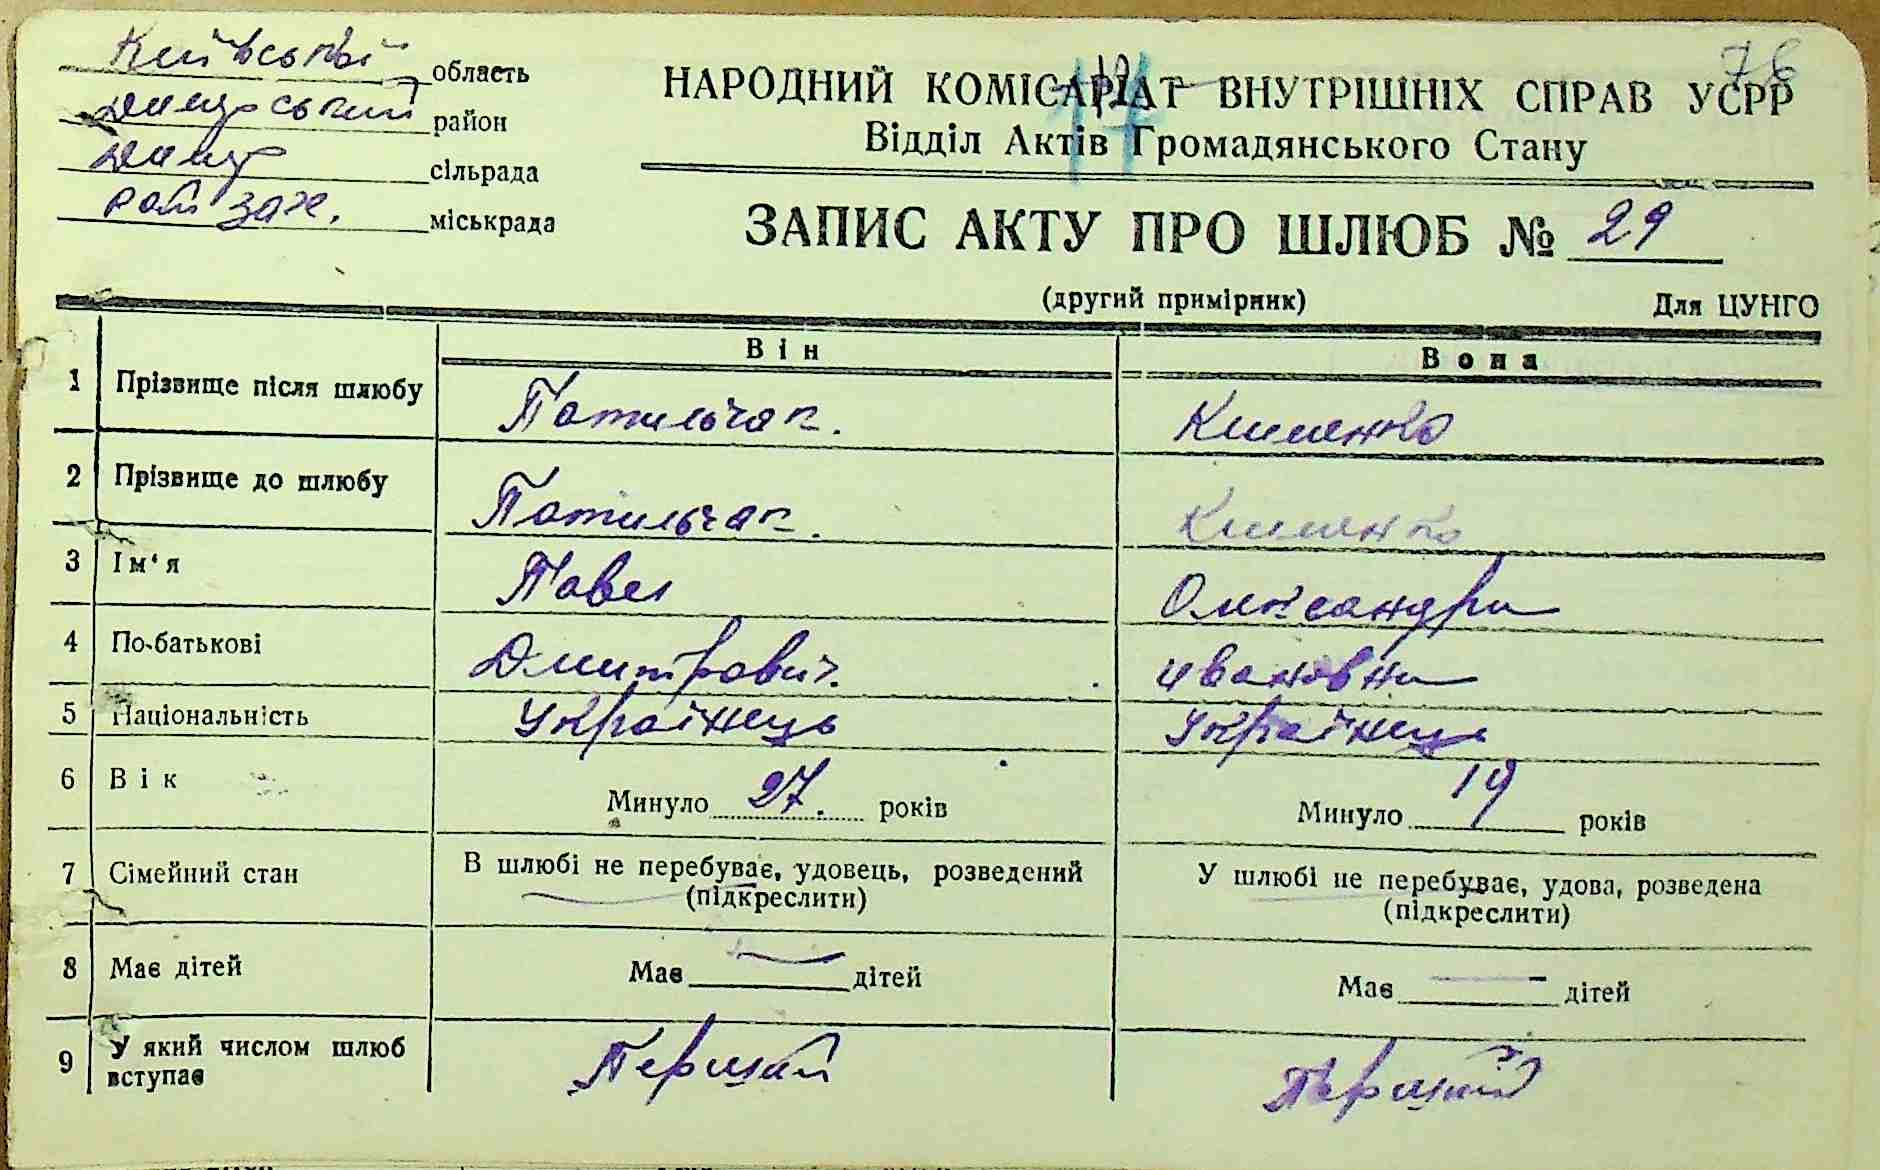 Київській область
Димерський район
Димер сільрада
рай заг. міськрада
78
НАРОДНИЙ КОМІСАРІАТ ВНУТРІШНІХ СПРАВ УСРР
Відділ Актів Громадянського Стану
ЗАПИС АКТУ ПРО ШЛЮБ № 29
(другий примірник) Для ЦУНГО
Він Вона
1 Прізвище після шлюбу Потильчак. Клименко
2 Прізвище до шлюбу Потильчак. Клименко
3 Ім‘я Павел Олександра
4 По-батькові Дмитрович. Ивановна
5 Національність Українець Українець
6 Вік Минуло 27. років Минуло 19 років
7 Сімейний стан В шлюбі не перебуває, удовець, розведений (підкреслити) У шлюбі не перебуває, удова, розведена (підкреслити)
8 Має дітей Має — дітей Має — дітей
9 У який числом шлюб вступає Перший Перший